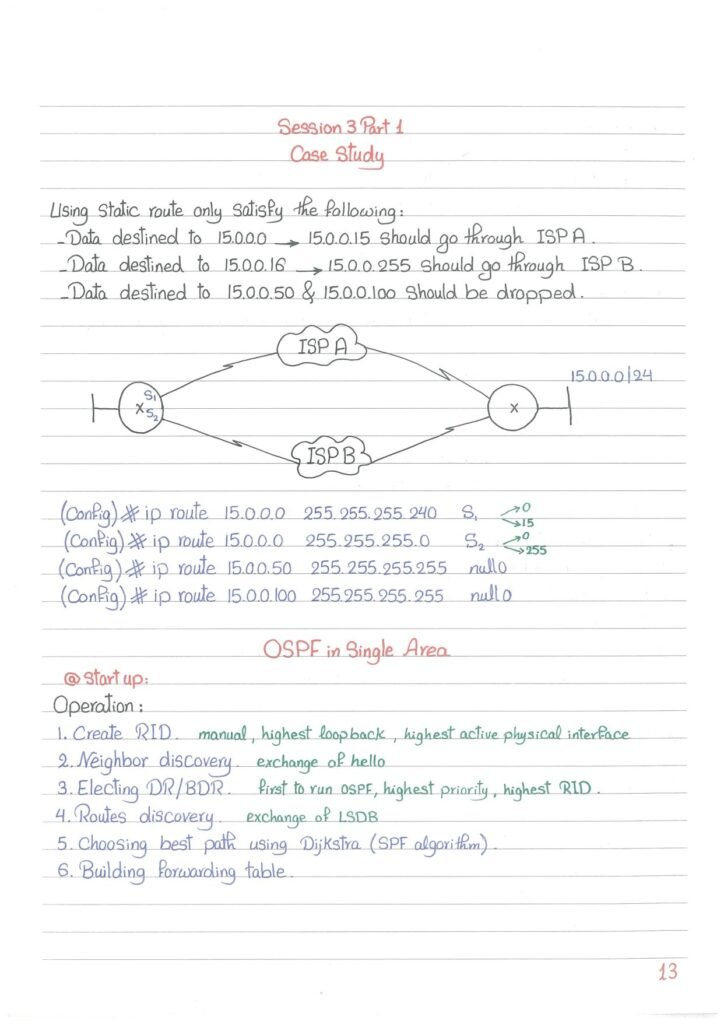 Session 3 Part 1
Case Study
Using static route only satisfy the following:
-Data destined to 15.0.0.0 → 15.0.0.15 should go through ISP A.
-Data destined to 15.0.0.16 → 15.0.0.255 should go through ISP B.
-Data destined to 15.0.0.50 & 15.0.0.100 should be dropped.
ISP A
15.0.0.0/24
S1
X
S2
X
ISP B
(Config)# ip route 15.0.0.0 255.255.255.240 S1 →0
→15
(Config)# ip route 15.0.0.0 255.255.255.0 S2 →0
→255
(Config)# ip route 15.0.0.50 255.255.255.255 null0
(Config)# ip route 15.0.0.100 255.255.255.255 null0
OSPF in Single Area
@ Start up:
Operation:
1. Create RID. manual, highest loopback, highest active physical interface
2. Neighbor discovery. exchange of hello
3. Electing DR/BDR. first to run OSPF, highest priority, highest RID.
4. Routes discovery. exchange of LSDB
5. Choosing best path using Dijkstra (SPF algorithm).
6. Building forwarding table.
13